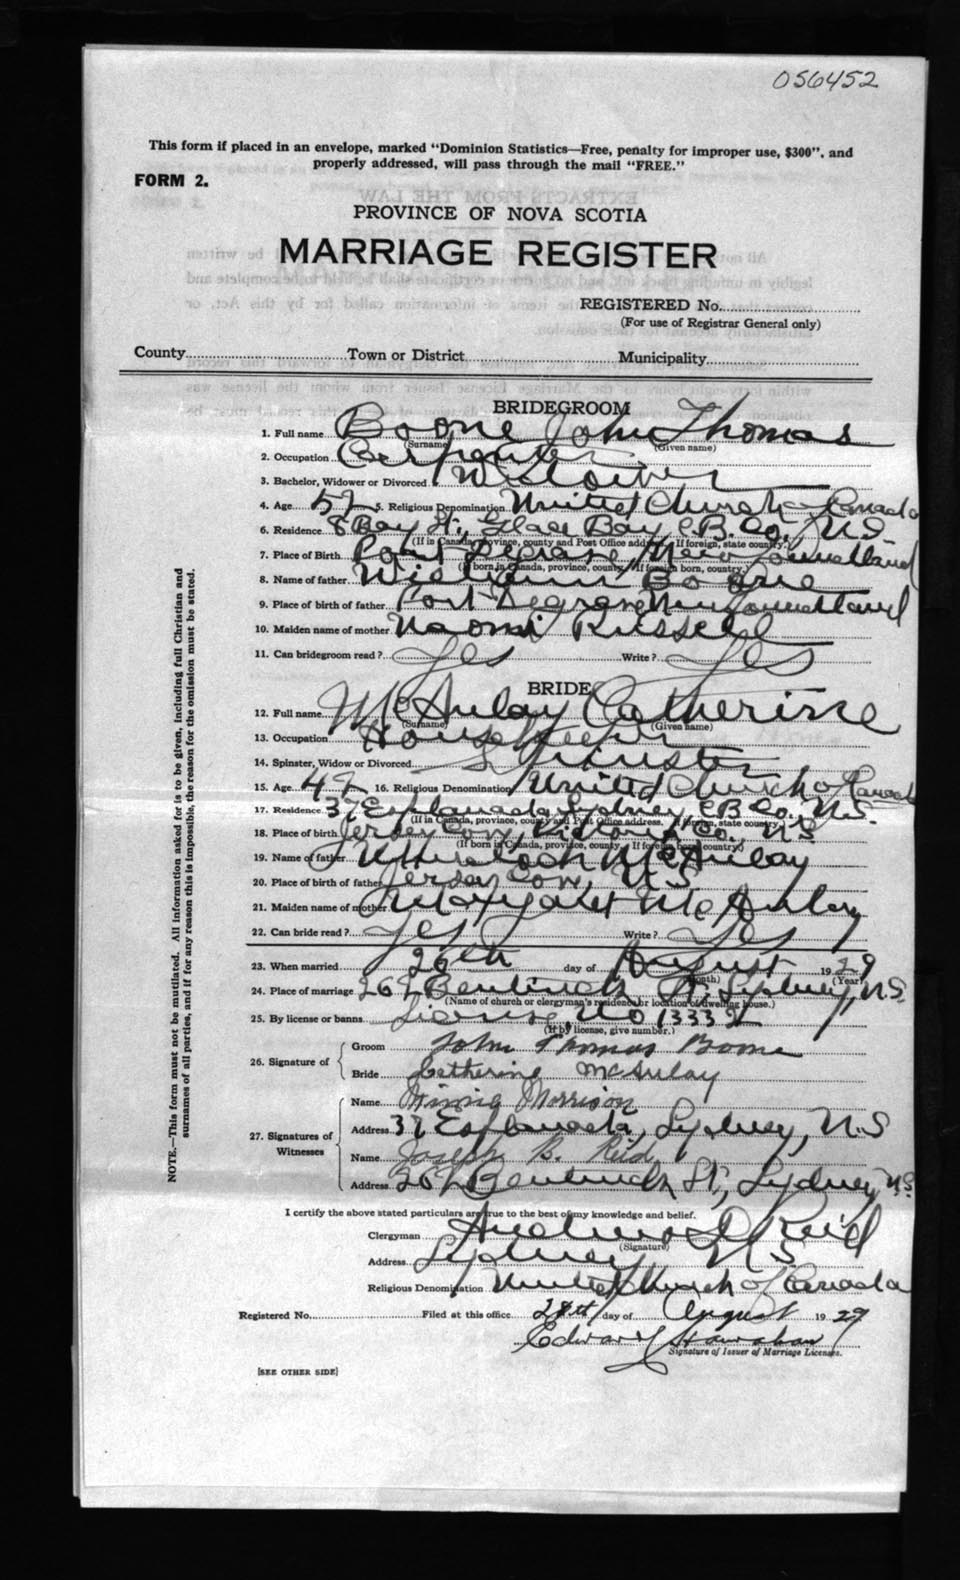 056452
This form if placed in an envelope, marked "Dominion Statistics—Free, penalty for improper use, $300", and
properly addressed, will pass through the mail "FREE."
FORM 2.
PROVINCE OF NOVA SCOTIA
MARRIAGE REGISTER
REGISTERED No.
(For use of Registrar General only)
County Town or District Municipality
BRIDEGROOM
1. Full name Boone John Thomas
(Surname) (Given name)
2. Occupation Carpenter
3. Bachelor, Widower or Divorced Widower
4. Age 52 5. Religious Denomination United Church of Canada
6. Residence 8 Bay St., Glace Bay, C.B. Co., N.S.
(If in Canada, province, county and Post Office address. If foreign, state country.)
7. Place of Birth Newfoundland
(If born in Canada, province, county. If foreign born, country.)
8. Name of father William Boone
9. Place of birth of father Newfoundland
10. Maiden name of mother Naomi Russell
11. Can bridegroom read? Yes Write? Yes
BRIDE
12. Full name McAulay Catherine
(Surname) (Given name)
13. Occupation Housekeeper
14. Spinster, Widow or Divorced Spinster
15. Age 42 16. Religious Denomination United Church of Canada
17. Residence 37 Esplanade, Sydney, C.B. Co., N.S.
(If in Canada, province, county and Post Office address. If foreign, state country.)
18. Place of birth Jersey Cove, Victoria Co., N.S.
(If born in Canada, province, county. If foreign born country.)
19. Name of father McAulay
20. Place of birth of father Jersey Cove, N.S.
21. Maiden name of mother Margaret McAulay
22. Can bride read? Yes Write? Yes
23. When married 26th day of August 1929
(Month) (Year)
24. Place of marriage 262 Bentinck St., Sydney, N.S.
(Name of church or clergyman's residence or location of dwelling house.)
25. By license or banns License, No 13332
(If by license, give number.)
26. Signature of
Groom John Thomas Boone
Bride Catherine McAulay
27. Signatures of Witnesses
Name Minnie Morrison
Address 37 Esplanade, Sydney, N.S
Name Joseph B. Reid
Address 262 Bentinck St., Sydney, N.S.
I certify the above stated particulars are true to the best of my knowledge and belief.
Clergyman Reid
(Signature)
Address Sydney N.S.
Religious Denomination United Church of Canada
Registered No. Filed at this office 28th day of August 1929
Edward
Signature of Issuer of Marriage Licenses.
[SEE OTHER SIDE]
NOTE.—This form must not be mutilated. All information asked for is to be given, including full Christian and
surnames of all parties, and if for any reason this is impossible, the reason for the omission must be stated.